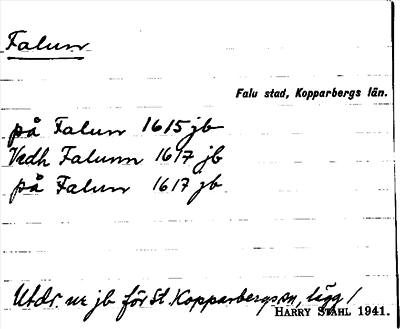 Falun
Falu stad, Kopparbergs län.
på Falun 1615 jb
Vedh Falunn 1617 jb
på Falun 1617 jb
Utdr. ur jb för St. Kopparbergs sn, lägg 1
HARRY STÅHL 1941.